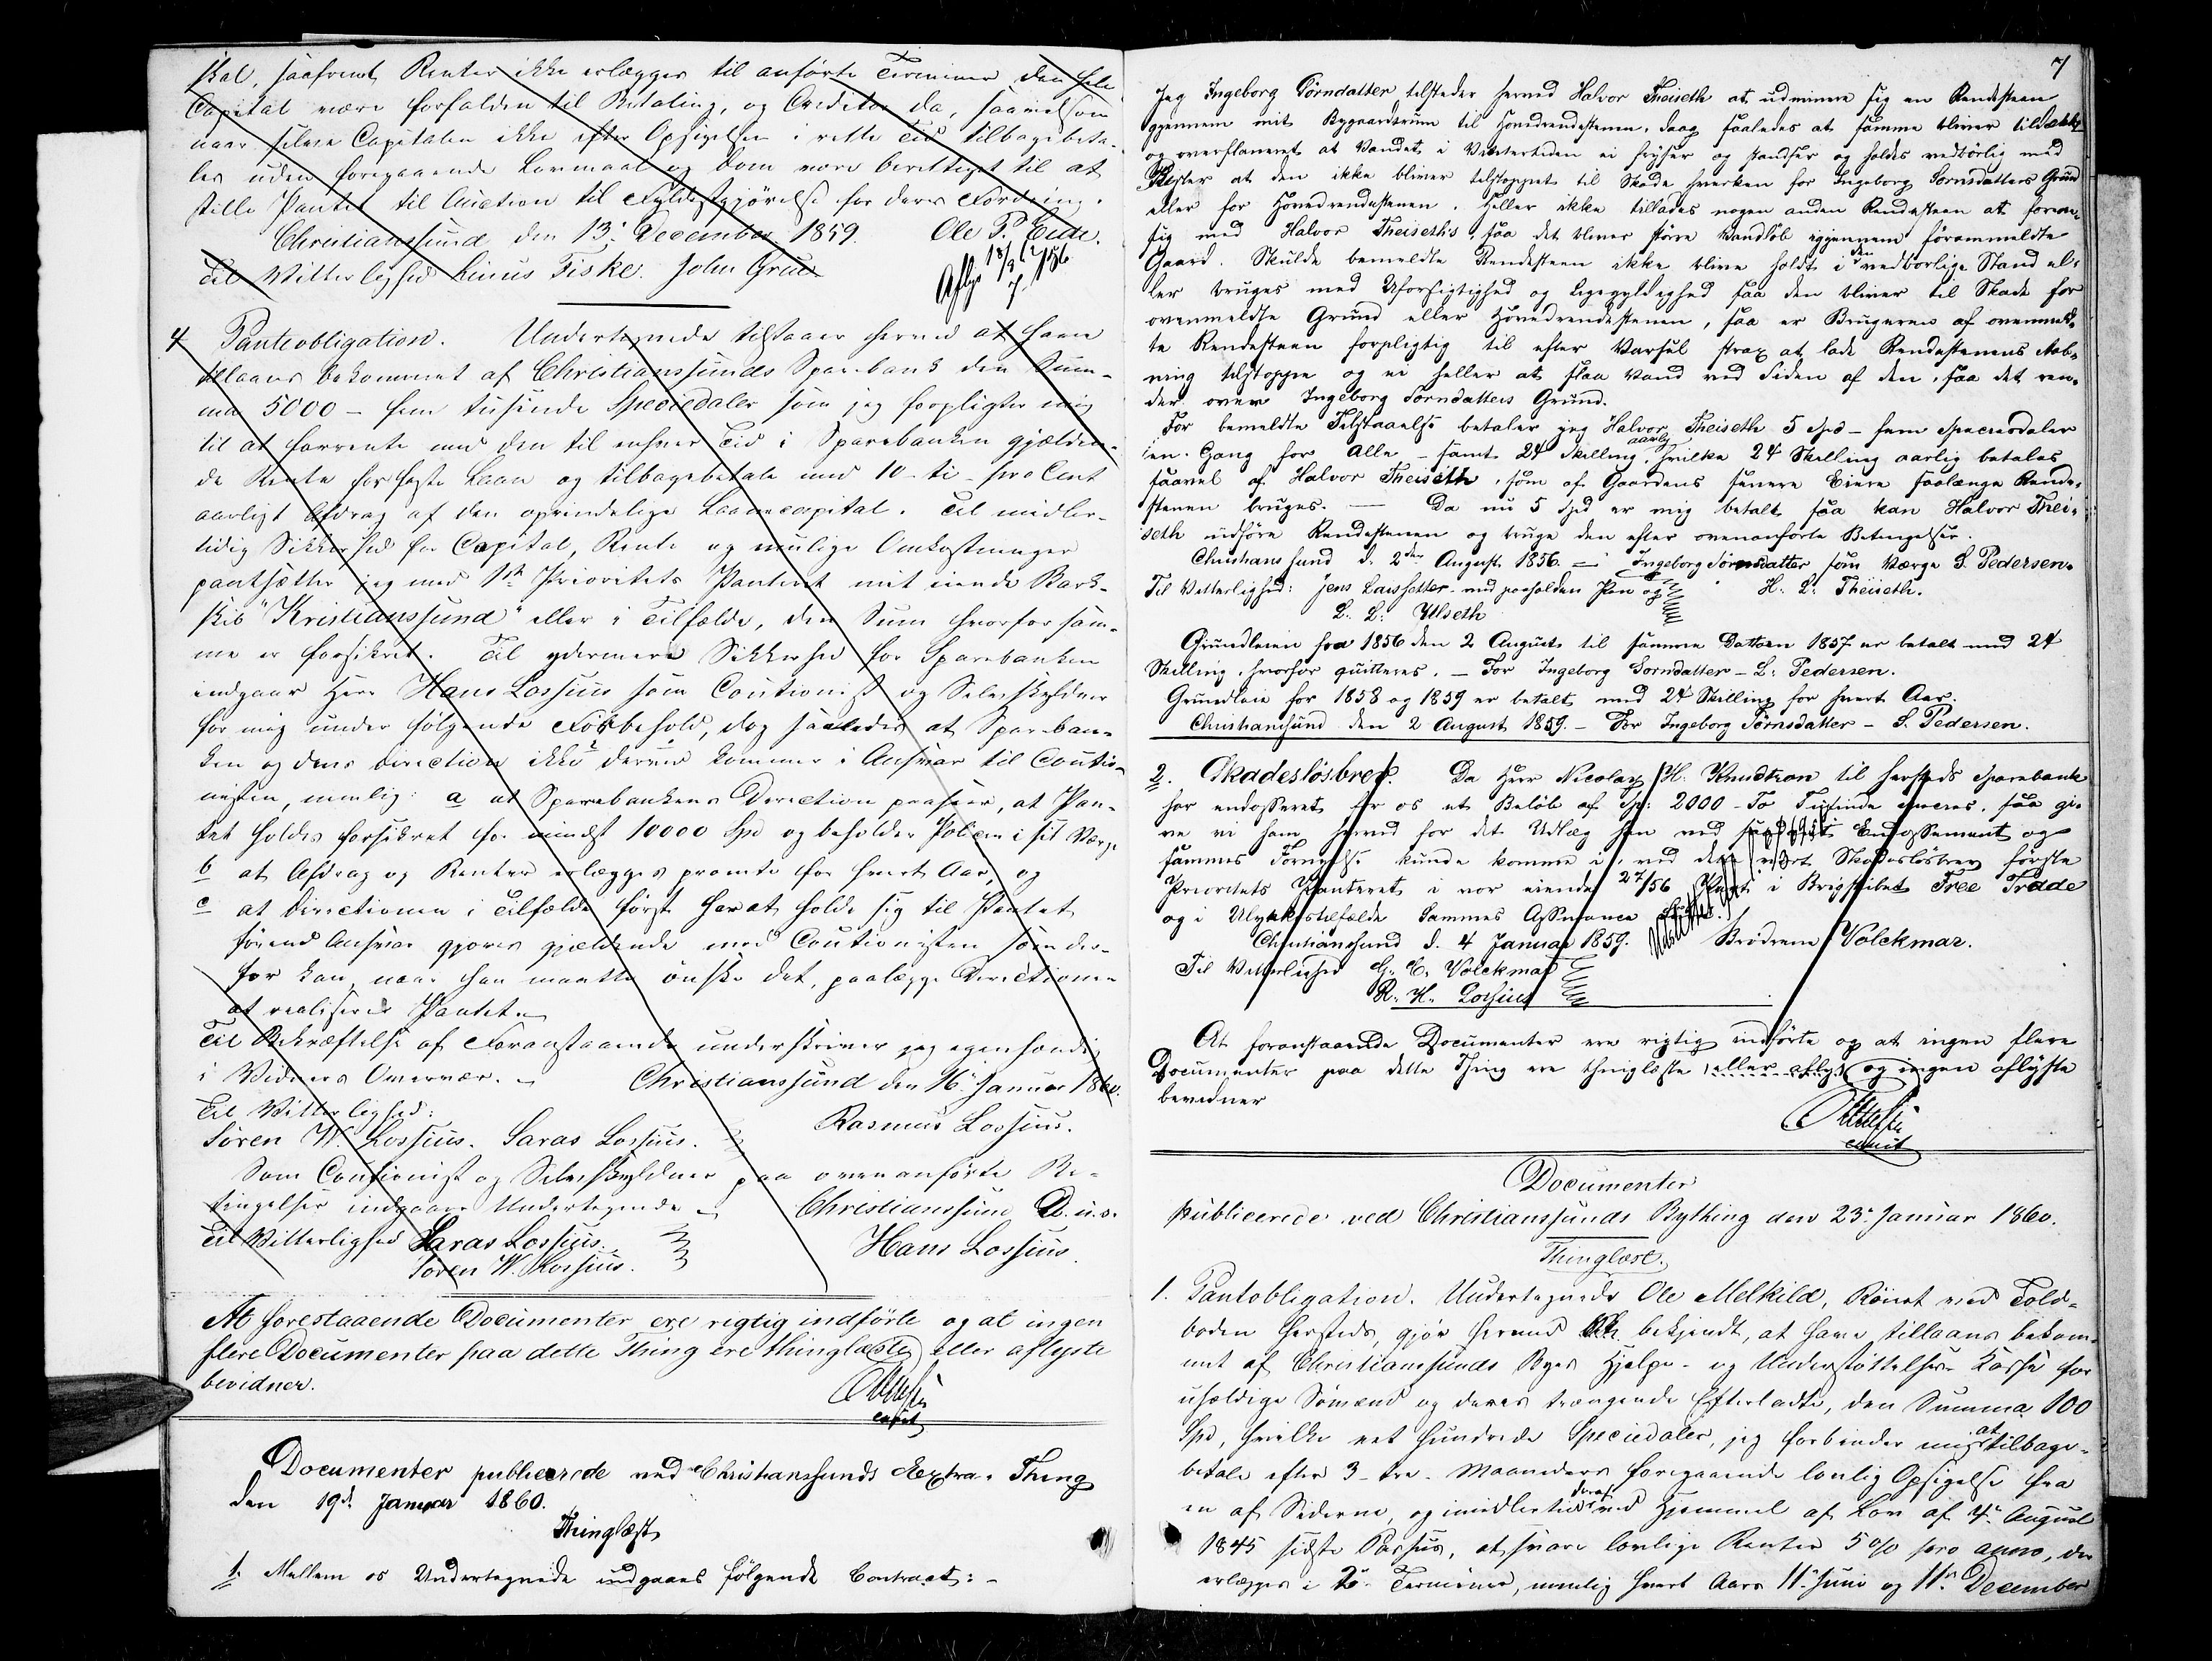 skal, saafremt Renter ikke erlægges til anførte Terminer den hele
Capital være forfalden til Betaling, og Creditor da, saavelsom
naar selve Capitalen ikke efter Opsigelsen i rette Tid tilbagebeta-
les uden foregaaende Lovmaal og Dom være berettiget til at
stille Pantet til Auction til Fyldestgjørelse for deres Fordring.
Christianssund den 13: December 1859. Ole P. Eide.
Til Vitterlighed Linus Fiske. John Grue
4 Panteobligation. Undertegnede tilstaaer herved at have
tillaans bekommet af Christianssunds Sparebank den Sum-
ma 5000 - fem tusinde Speciedaler som jeg forpligter mig
til at forrente med den til enhver Tid i Sparebanken gjælden-
de Rente for faste Laan og tilbagebetale med 10 - ti - pro Cent
aarligt Afdrag af den oprindelige Laanecapital. Til midler-
tidig Sikkerhed for Capital, Rente og mulige Omkostninger
pantsætter jeg med 1ste Prioritets Panteret mit eiende Bark-
skib "Kristianssund" eller i Tilfælde, den Sum hvorfor sam-
me er forsikret. Til ydermere Sikkerhed for Sparebanken
indgaar Herr Hans Lossius som Cautionist og Selvskyldner
for mig under følgende Forbehold, dog saaledes at Spareban-
ken og dens Direction ikke derved kommer i Ansvar til Cautio-
nisten, nemlig: a at Sparebankens Direction paaseer, at Pan-
tet holdes forsikret for mindst 10000 Spd og beholder Policen i sit Værge
b at Afdrag og Renter erlægges promte for hvert Aar, og
c at Directionen i Tilfælde først har at holde sig til Pantet
førend Ansvar gjøres gjældende mod Cautionisten som der-
for kan, naar han maatte ønske det, paalægge Directionen
at realisere Pantet.
Til Bekræftelse af Foranstaaende underskriver jeg egenhændig
i Vidners Overvær. Christianssund den 16: Januar 1860.
Til Vitterlighed:
Søren W. Lossius. Saras Lossius. Rasmus Lossius.
Som Cautionist og Selvskyldner paa ovenanførte Be-
tingelser indgaaer Undertegnede Christianssund D. u. s.
Til Vitterlighed Saras Lossius. Hans Lossius.
Søren W. Lossius.
At forestaaende Documenter ere rigtig indførte og at ingen
flere Documenter paa dette Thing ere thinglæste eller aflyste
bevidner.
const
Documenter publicerede ved Christianssunds Extra-Thing
den 19d. Januar 1860.
Thinglæst
1. Mellem os Undertegnede indgaaes følgende Contract: -
7
Jeg Ingeborg Tørnsdatter tilsteder herved Halvor Theiseth at udminere sig en Rendesteen
gjennem mit Bygaardsrum til Hovedrendestenen, dog saaledes at samme bliver tildækket
og overflaneret at Vandet i Vintertiden ei fryser og standser og holdes vedbørlig med
Rister at den ikke bliver tilstoppet til Skade hverken for Ingeborg Tørnsdatters Grund
eller for Hovedrendestenen. Heller ikke tillades nogen anden Rendesteen at foren-
sig med Halvor Theiseths, saa det bliver større Vandløb igjennem førommeldte
Gaard. Skulde bemeldte Rendesteen ikke blive holdt i den vedbørlige Stand el-
ler bruges med Uforsigtighed og Ligegyldighed saa den bliver til Skade for
ovenmeldte Grund eller Hovedrendestenen, saa er Brugeren af ovenmeld-
te Rendesteen forpligtig til efter Varsel strax at lade Rendestenens Aab-
ning tilstoppe og ei heller at slaa Vand ved Siden af den, saa det ren-
der over Ingeborg Tørnsdatters Grund.
For bemeldte Tilstaaelse betaler jeg Halvor Theiseth 5 Spd - fem Speciesdaler
een Gang for Alle - samt 24 Skilling aarlig, hvilke 24 Skilling aarlig betales
saavel af Halvor Theiseth, som af Gaardens senere Eiere saalænge Rende-
stenen bruges. — Da nu 5 Spd er mig betalt saa kan Halvor Thei-
seth udføre Rendestenen og bruge den efter ovenanførte Betingelser.
Christianssund d. 2den August 1856. — Ingeborg Tørnsdatter som Værge S. Pedersen.
Til Vitterlighed: Jens Larssetter med paaholden Pen og H. L. Theiseth.
L. L. Ulseth
Grundleien fra 1856 den 2 August til samme Datum 1857 er betalt med 24
Skilling, hvorfor quitteres. — For Ingeborg Tørnsdatter - S. Pedersen.
Grundleie for 1858 og 1859 er betalt med 24 Skilling for hvert Aar.
Christianssund den 2 August 1859. - For Ingeborg Tørnsdatter - S. Pedersen.
2. Skadesløsbrev. Da Herr Nicolay H. Knudtzon til herstads Sparebank
har endosseret for os et Beløb af Sp: 2000 - To Tusinde species, saa gi-
ve vi ham herved for det Udlæg han ved Endossement og
sammes Fornyelse kunde komme i, ved dette vort Skadesløsbrev første
Prioritets Panteret i vor eiende 27/56 Part i Brigskibet Free Trade
og i Ulykkestilfælde sammes Assurance
Christianssund d. 4 Januar 1859. Brødrene Volckmar.
Til Vitterlighed G. C. Volckmar
R. H. Lossius
At foranstaaende Documenter ere rigtig indførte og at ingen flere
Documenter paa dette Thing ere thinglæste eller aflyst og ingen aflyste
bevidner
const
Documenter
publicerede ved Christianssunds Bything den 23: Januar 1860.
Thinglæst.
1. Pantobligation. Undertegnede Ole Melkild, Rönet ved Told-
boden herstads, gjør herved bekjendt, at have tillaans bekom-
met af Christianssunds Byes Hjelpe- og Understøttelses Kasse for
uheldige Sømænd og deres trængende Efterladte, den Summa 100
Spd, hvilke eet hundrede Speciedaler, jeg forbinder mig at tilbage-
betale efter 3 - tre - Maaneders foregaaende lovlig Opsigelse fra
en af Siderne, og imidlertid deraf ved Hjemmel af Lov af 4: August
1845 sidste Passus, at svare lovlige Renter 5 % pro anno, der
erlægges i 2: Terminer, nemlig hvert Aars 11: Juni og 11: December